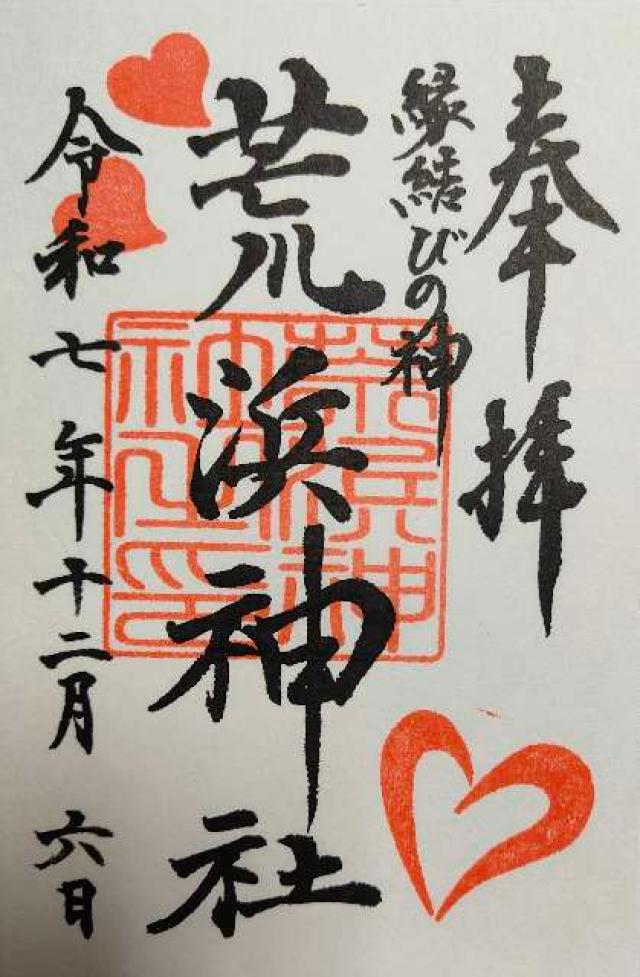 奉拝
縁結びの神
荒浜神社
令和七年十二月六日